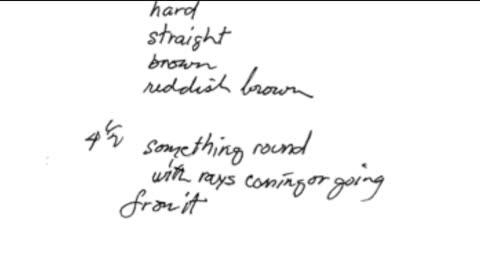 hard
straight
brown
reddish brown
4 1/2 something round
with rays coming or going
from it